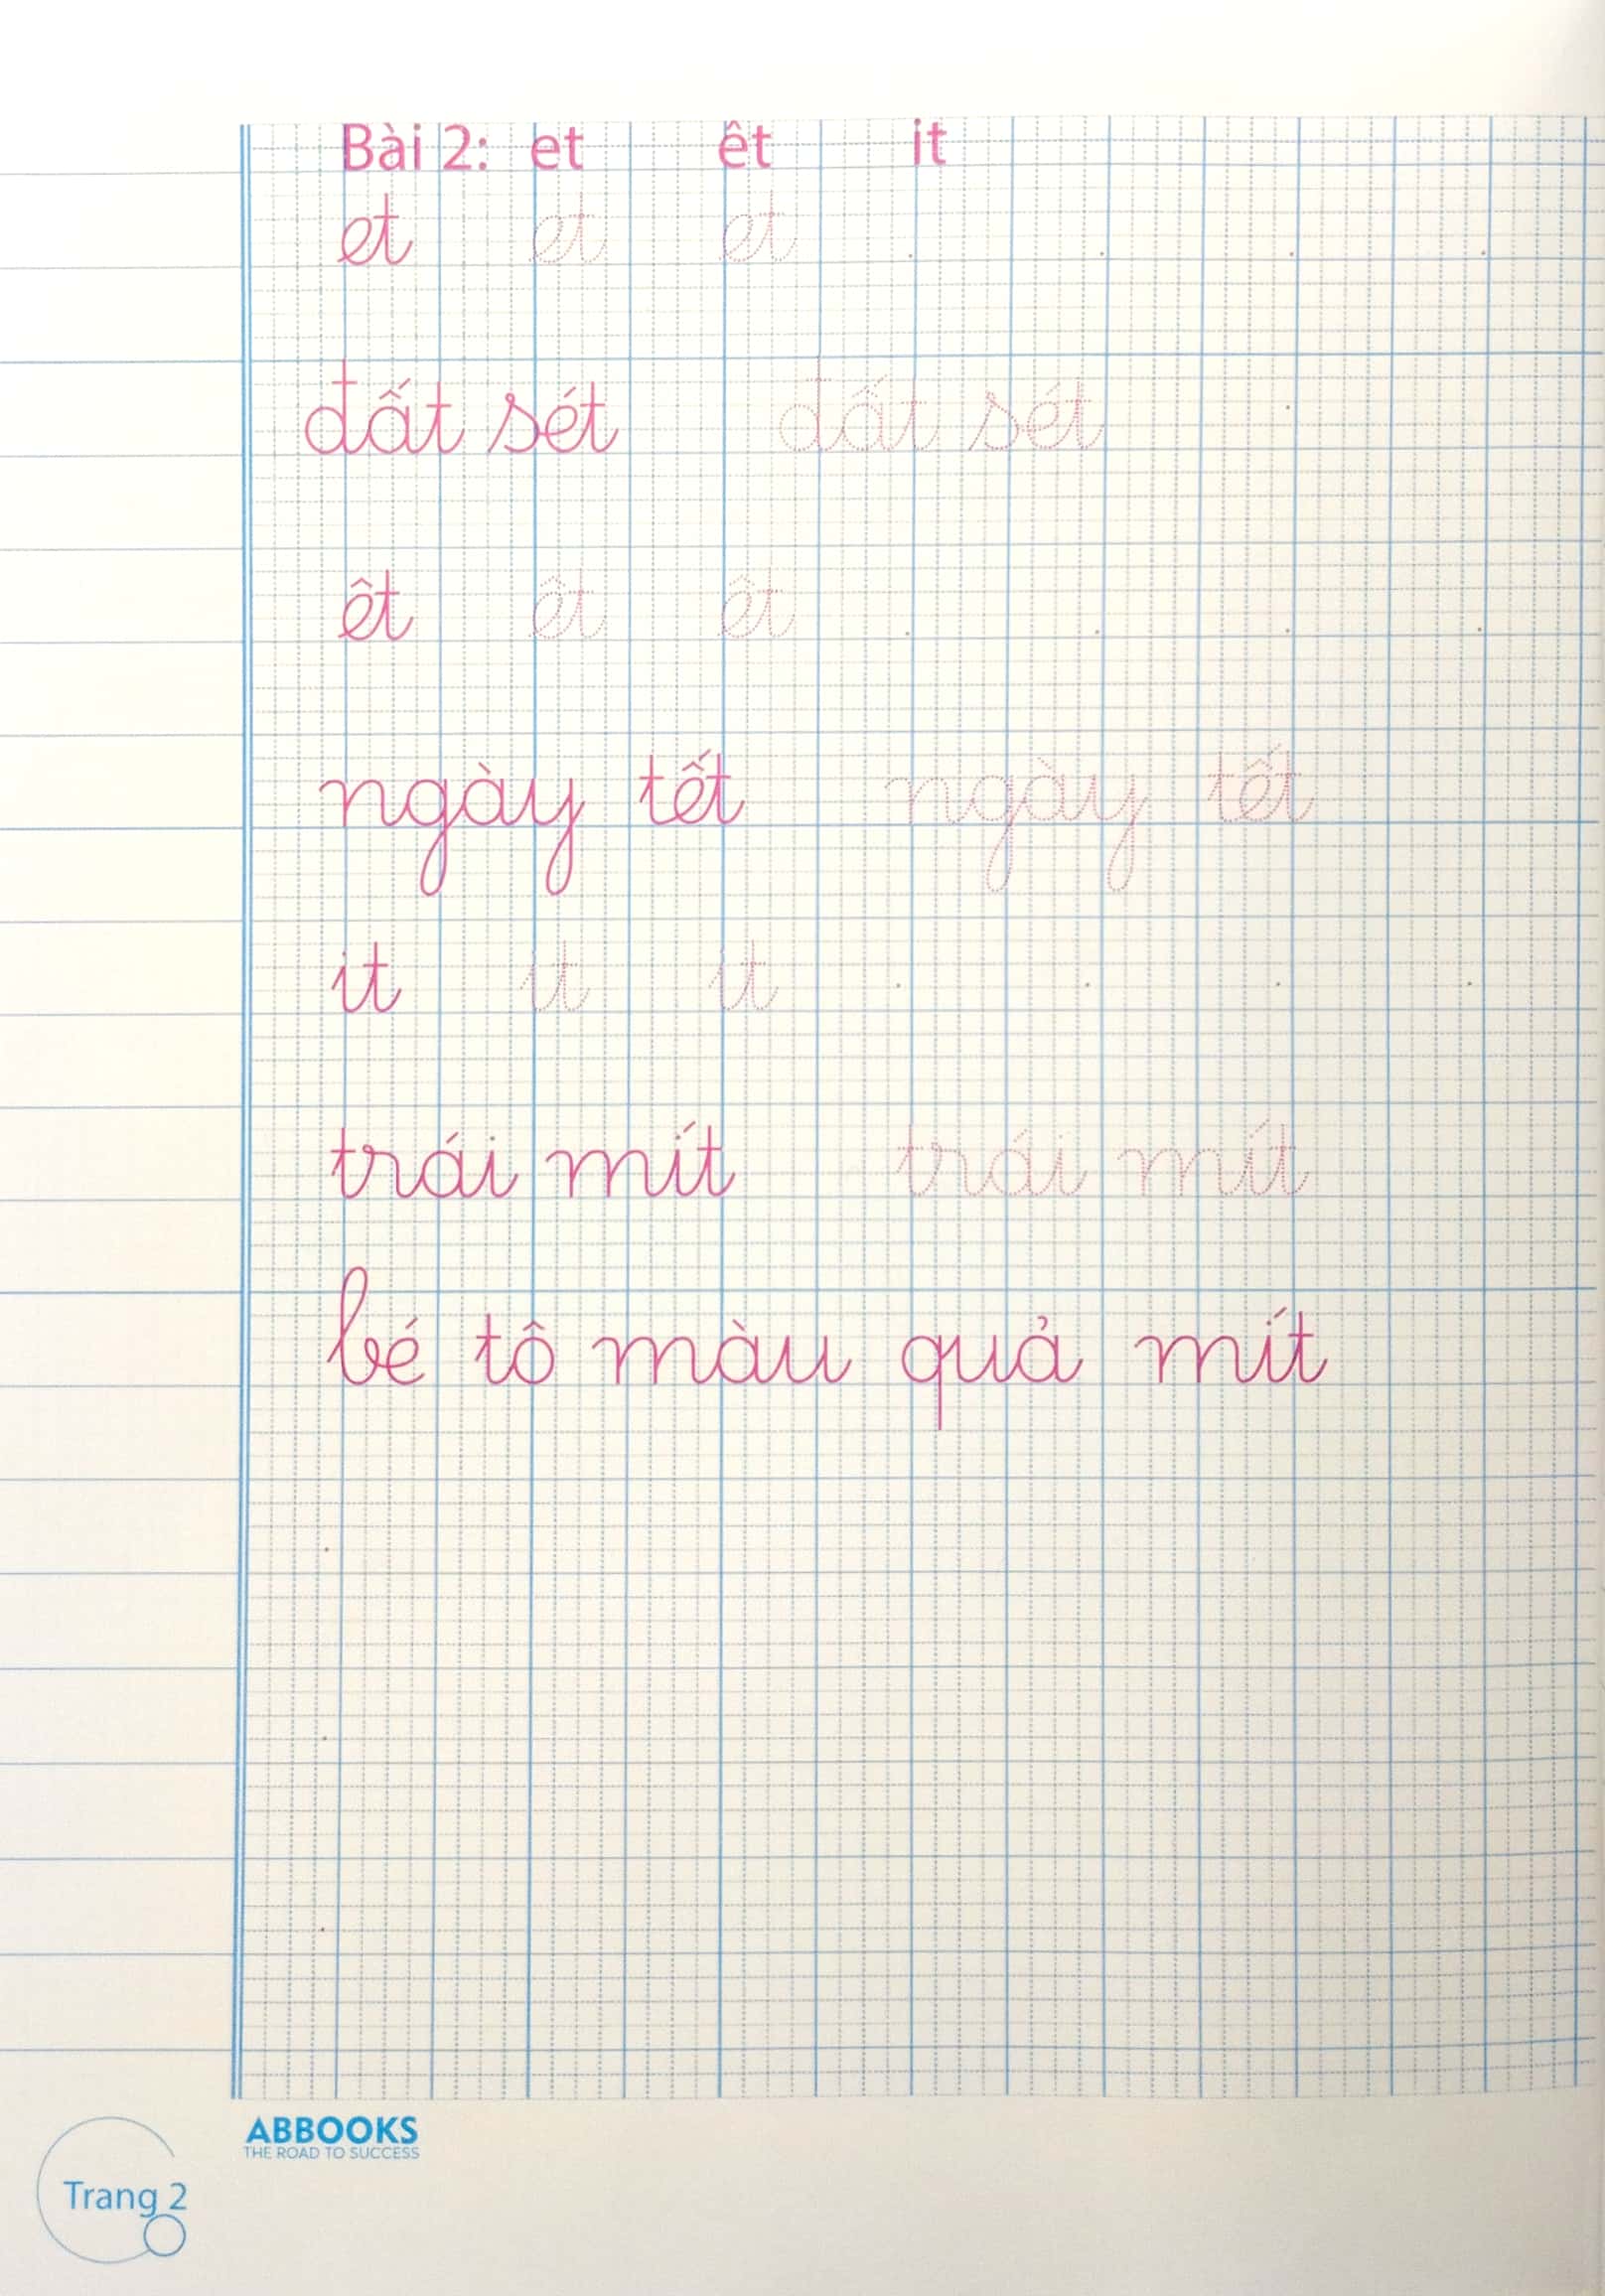 Bài 2: et êt it
et et et
đất sét đất sét
êt êt êt
ngày tết ngày tết
it it it
trái mít trái mít
bé tô màu quả mít
ABBOOKS
THE ROAD TO SUCCESS
Trang 2